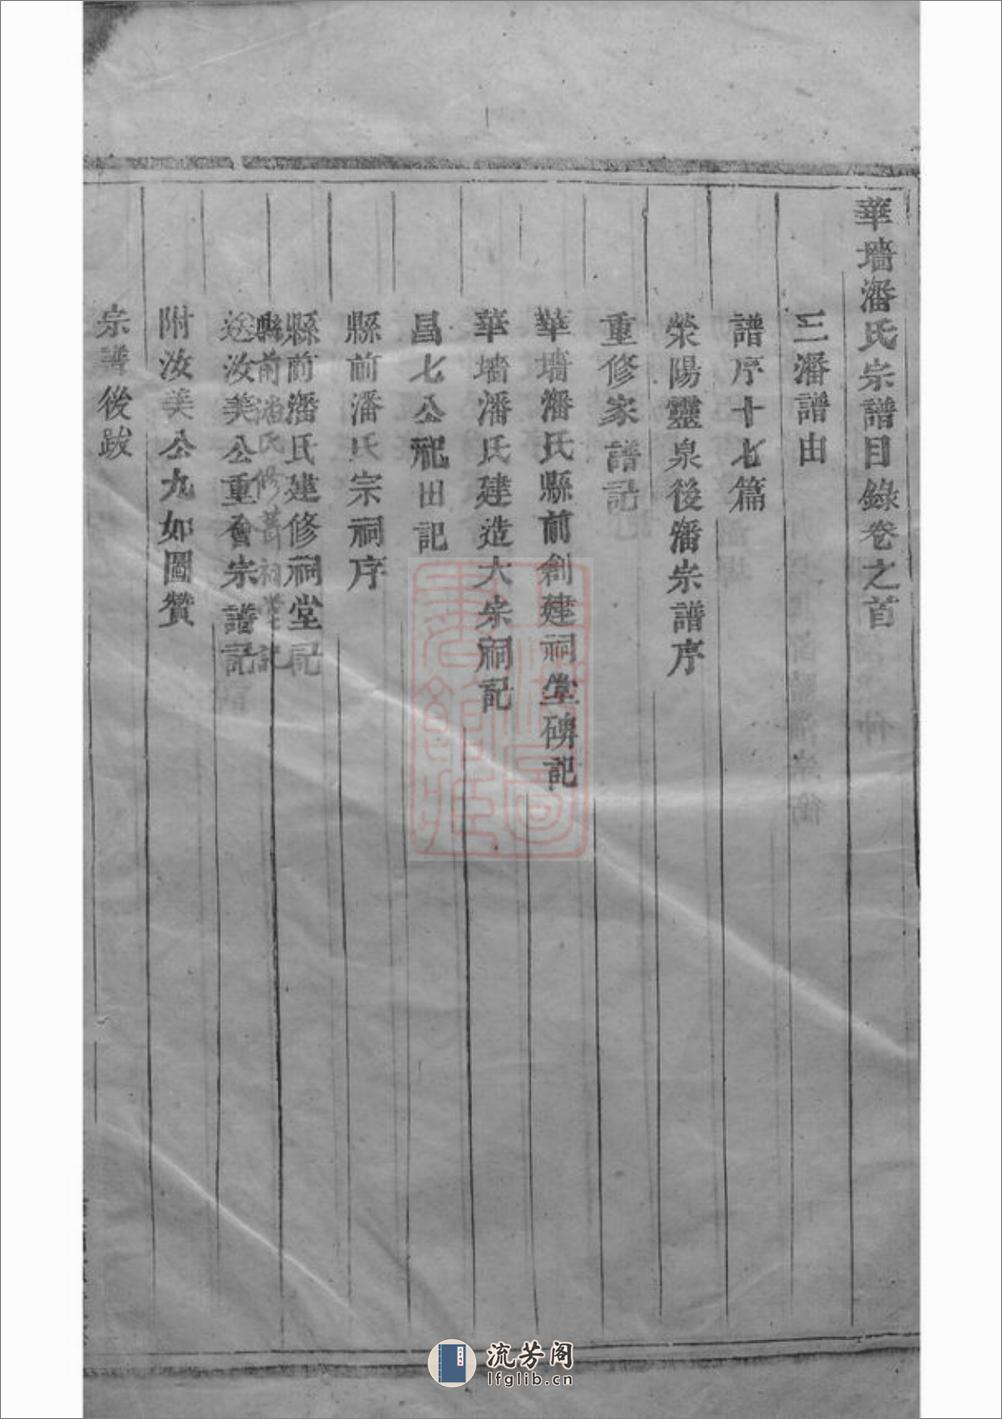 華墻潘氏宗譜目錄卷之首
三潘譜由
譜序十七篇
滎陽靈泉後潘宗譜序
重修家譜記
華墻潘氏縣前創建祠堂碑記
華墻潘氏建造大宗祠記
昌七公祀田記
縣前潘氏宗祠序
縣前潘氏建修祠堂記
縣前潘氏修葺祠堂記
送汝美公重會宗譜記
附汝美公九如圖贊
宗譜後跋
流芳阁
lfglib.cn